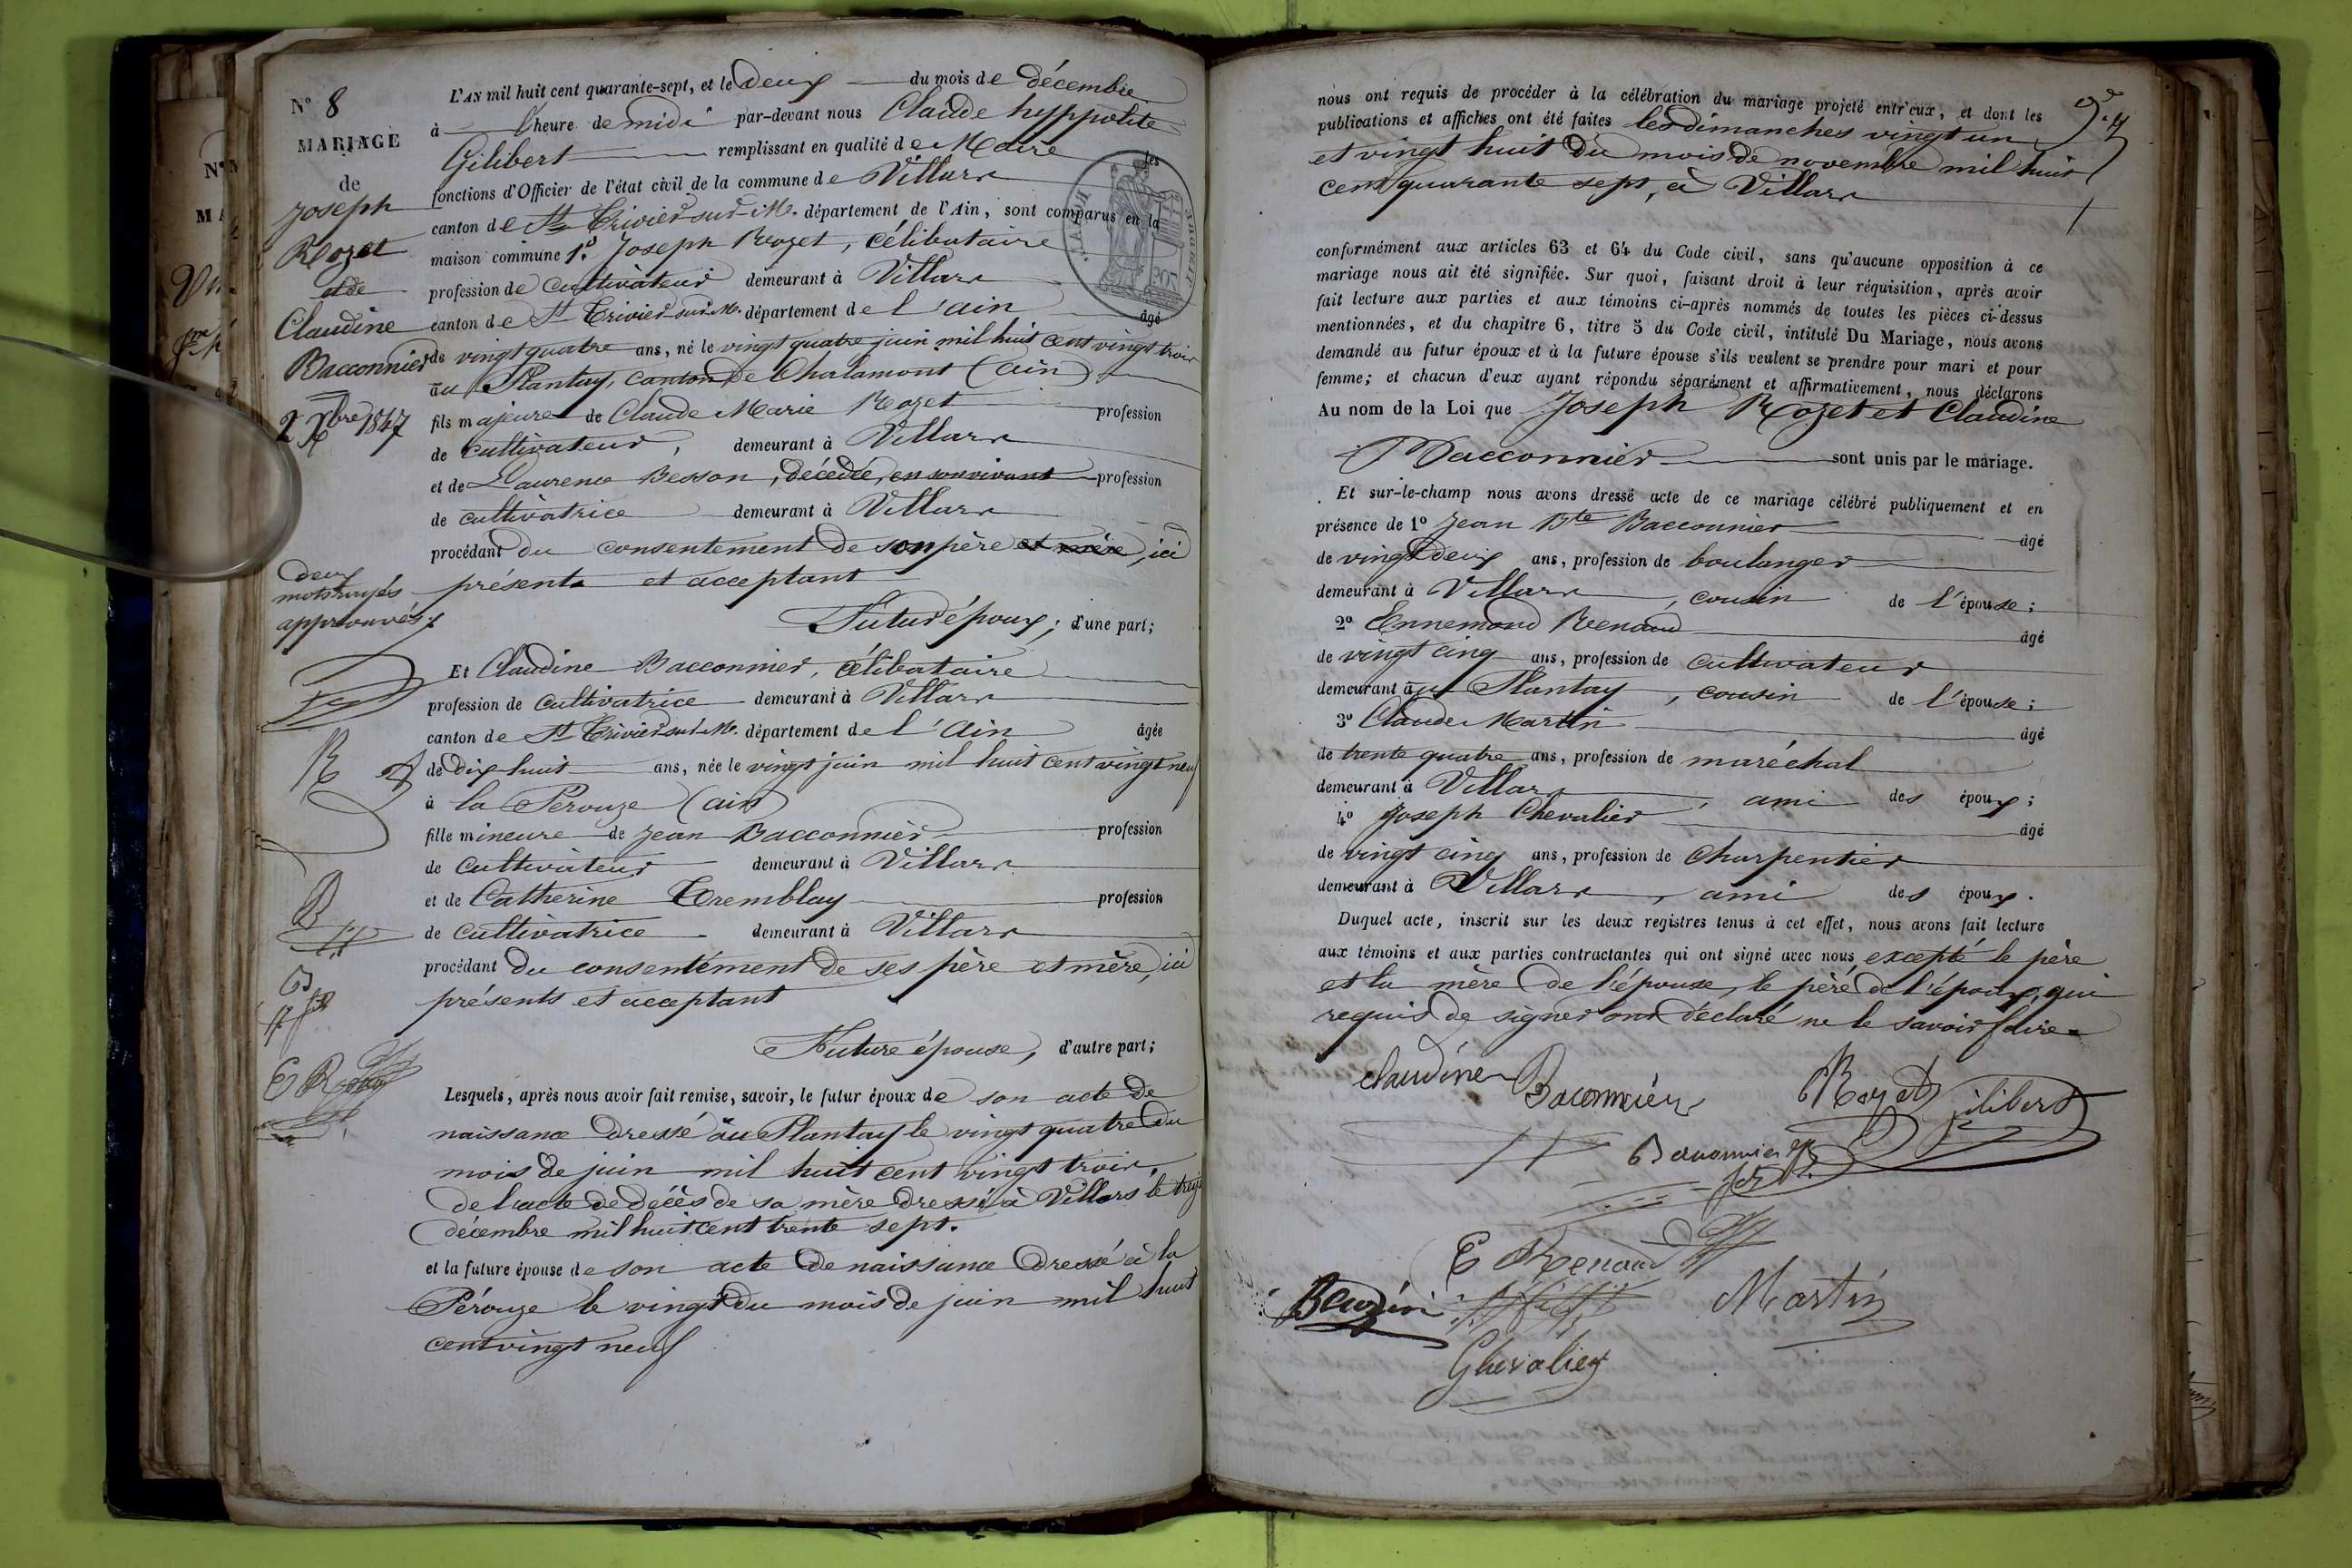 N° 8
MARIAGE
de
Joseph
Rozet
et de
Claudine
Bacconnier
2 Xbre 1847
deux
mots rayés
approuvés
R
B
E R
L'AN mil huit cent quarante-sept, et le deux du mois de décembre
à l'heure de midi par-devant nous Claude hyppolite
Gilibert remplissant en qualité de Maire les
fonctions d'Officier de l'état civil de la commune de Villars
canton de St Trivier-sur-M. département de l'Ain, sont comparus en la
maison commune 1.° Joseph Rozet, célibataire
profession de cultivateur demeurant à Villars
canton de St Trivier-sur-M. département de l'ain âgé
de vingt quatre ans, né le vingt quatre juin mil huit cent vingt trois
au Plantay, canton de Chalamont (ain)
fils majeure de Claude Marie Rozet profession
de cultivateur, demeurant à Villars
et de Laurence Besson, décédée, en son vivant profession
de cultivatrice demeurant à Villars
procédant du consentement de son père et mère, ici
présent et acceptant
Futur époux; d'une part;
Et Claudine Bacconnier, célibataire
profession de cultivatrice demeurant à Villars
canton de St Trivier-sur-M. département de l'Ain âgée
de dix huit ans, née le vingt juin mil huit cent vingt neuf
à la Pérouze (ain)
fille mineure de Jean Bacconnier profession
de cultivateur demeurant à Villars
et de Catherine Tremblay profession
de cultivatrice demeurant à Villars
procédant du consentement de ses père et mère, ici
présents et acceptant
Future épouse, d'autre part;
Lesquels, après nous avoir fait remise, savoir, le futur époux de son acte de
naissance dressé au Plantay le vingt quatre du
mois de juin mil huit cent vingt trois,
de l'acte de décès de sa mère dressé à Villars le treize
décembre mil huit cent trente sept.
et la future épouse de son acte de naissance dressé à la
Pérouze le vingt du mois de juin mil huit
cent vingt neuf
nous ont requis de procéder à la célébration du mariage projeté entr'eux, et dont les
publications et affiches ont été faites les dimanches vingt un
et vingt huit du mois de novembre mil huit
cent quarante sept, à Villars
conformément aux articles 63 et 64 du Code civil, sans qu'aucune opposition à ce
mariage nous ait été signifiée. Sur quoi, faisant droit à leur réquisition, après avoir
fait lecture aux parties et aux témoins ci-après nommés de toutes les pièces ci-dessus
mentionnées, et du chapitre 6, titre 5 du Code civil, intitulé Du Mariage, nous avons
demandé au futur époux et à la future épouse s'ils veulent se prendre pour mari et pour
femme; et chacun d'eux ayant répondu séparément et affirmativement, nous déclarons
Au nom de la Loi que Joseph Rozet et Claudine
Bacconnier sont unis par le mariage.
Et sur-le-champ nous avons dressé acte de ce mariage célébré publiquement et en
présence de 1° Jean Bte Bacconnier âgé
de vingt deux ans, profession de boulanger
demeurant à Villars, cousin de l'épouse;
2° Ennemond Renaud âgé
de vingt cinq ans, profession de cultivateur
demeurant au Plantay, cousin de l'épouse;
3° Claude Martin âgé
de trente quatre ans, profession de maréchal
demeurant à Villars, ami des époux;
4° Joseph Chevalier âgé
de vingt cinq ans, profession de charpentier
demeurant à Villars, ami des époux.
Duquel acte, inscrit sur les deux registres tenus à cet effet, nous avons fait lecture
aux témoins et aux parties contractantes qui ont signé avec nous excepté le père
et la mère de l'épouse, le père de l'époux, qui
requis de signer ont déclaré ne le savoir faire
claudine Baconniér Rozet Gilibert
E Renaud
Martin
Chevalier